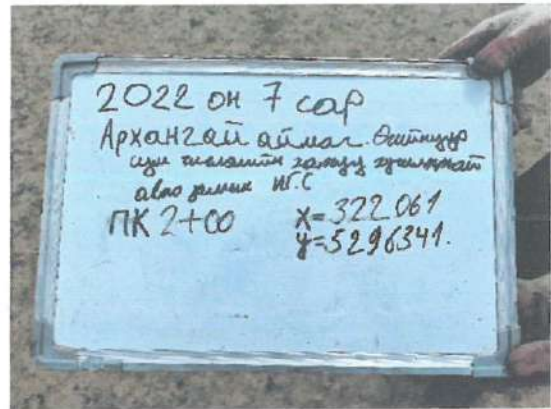 2022 он 7 сар
Архангай аймаг. Өгийнуур
сум
авто замын И.Г.С
ПК 2+00 X=322061
y=5296341.